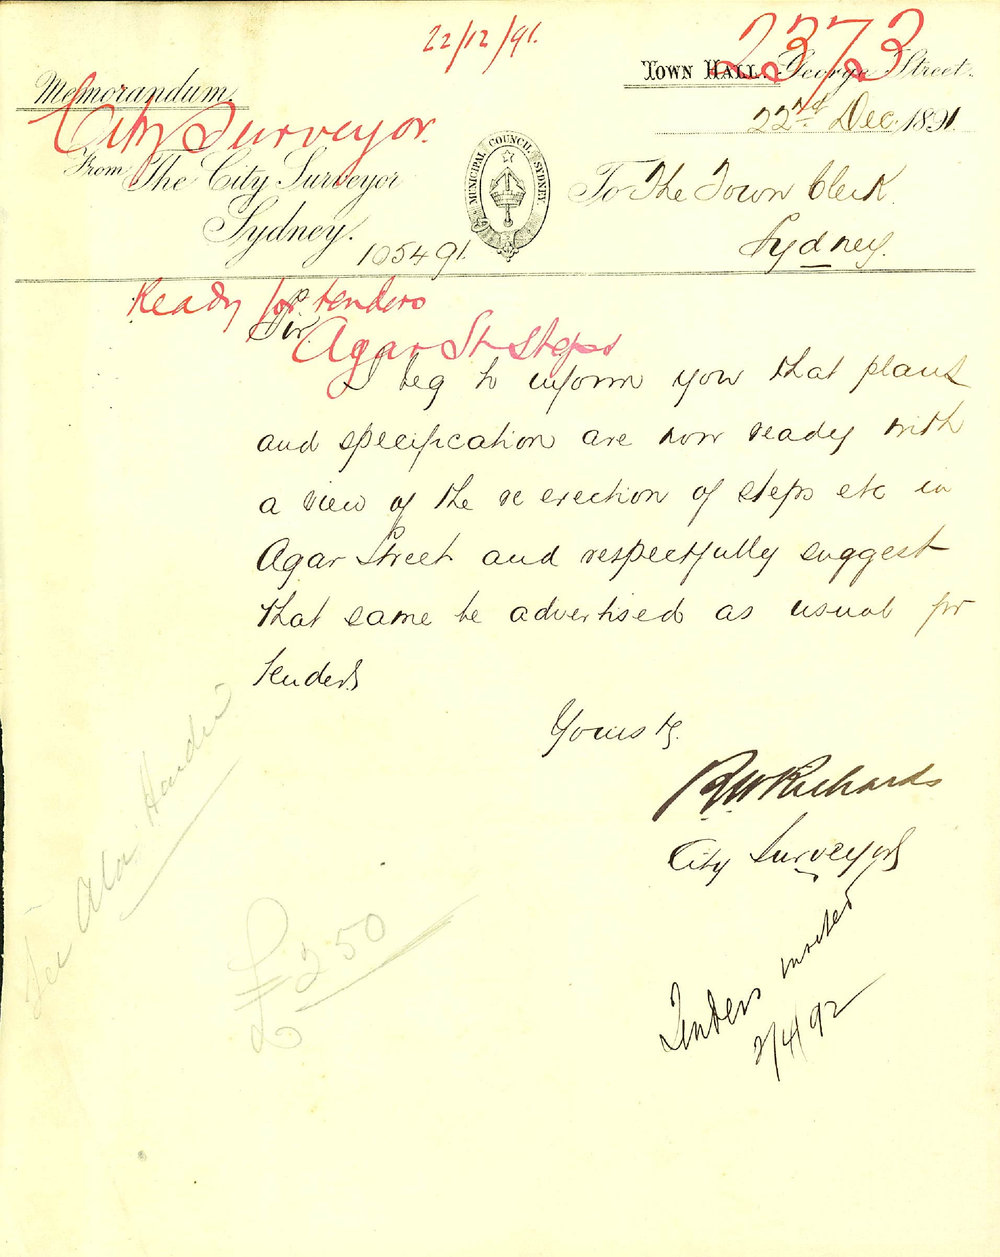 22/12/91.
2373
TOWN HALL. George Street.
Memorandum.
22nd Dec. 1891.
City Surveyor.
From The City Surveyor
Sydney.
MUNICIPAL COUNCIL, SYDNEY.
To The Town Clerk.
Sydney.
1054 91.
Ready for tenders
Sir
Agar St Steps
I beg to inform you that plans
and specification are now ready with
a view of the re erection of steps etc in
Agar Street and respectfully suggest
that same be advertised as usual for
tenders
Yours
R W Richards
City Surveyor
£250
Tenders invited
2/4/92